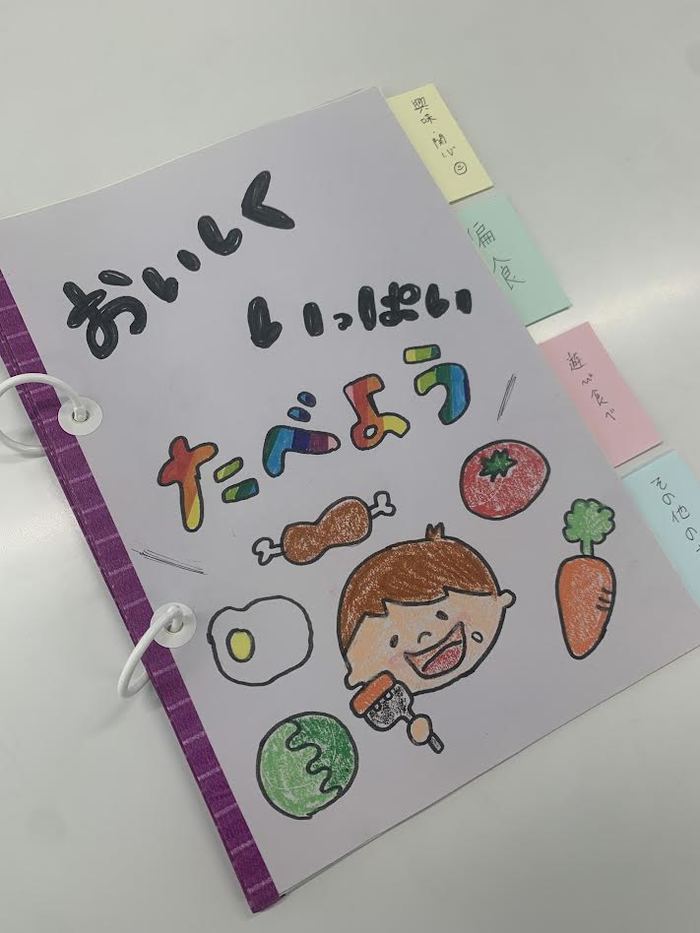 おいしく
いっぱい
たべよう
興味 関心
偏食
遊び食べ
その他の